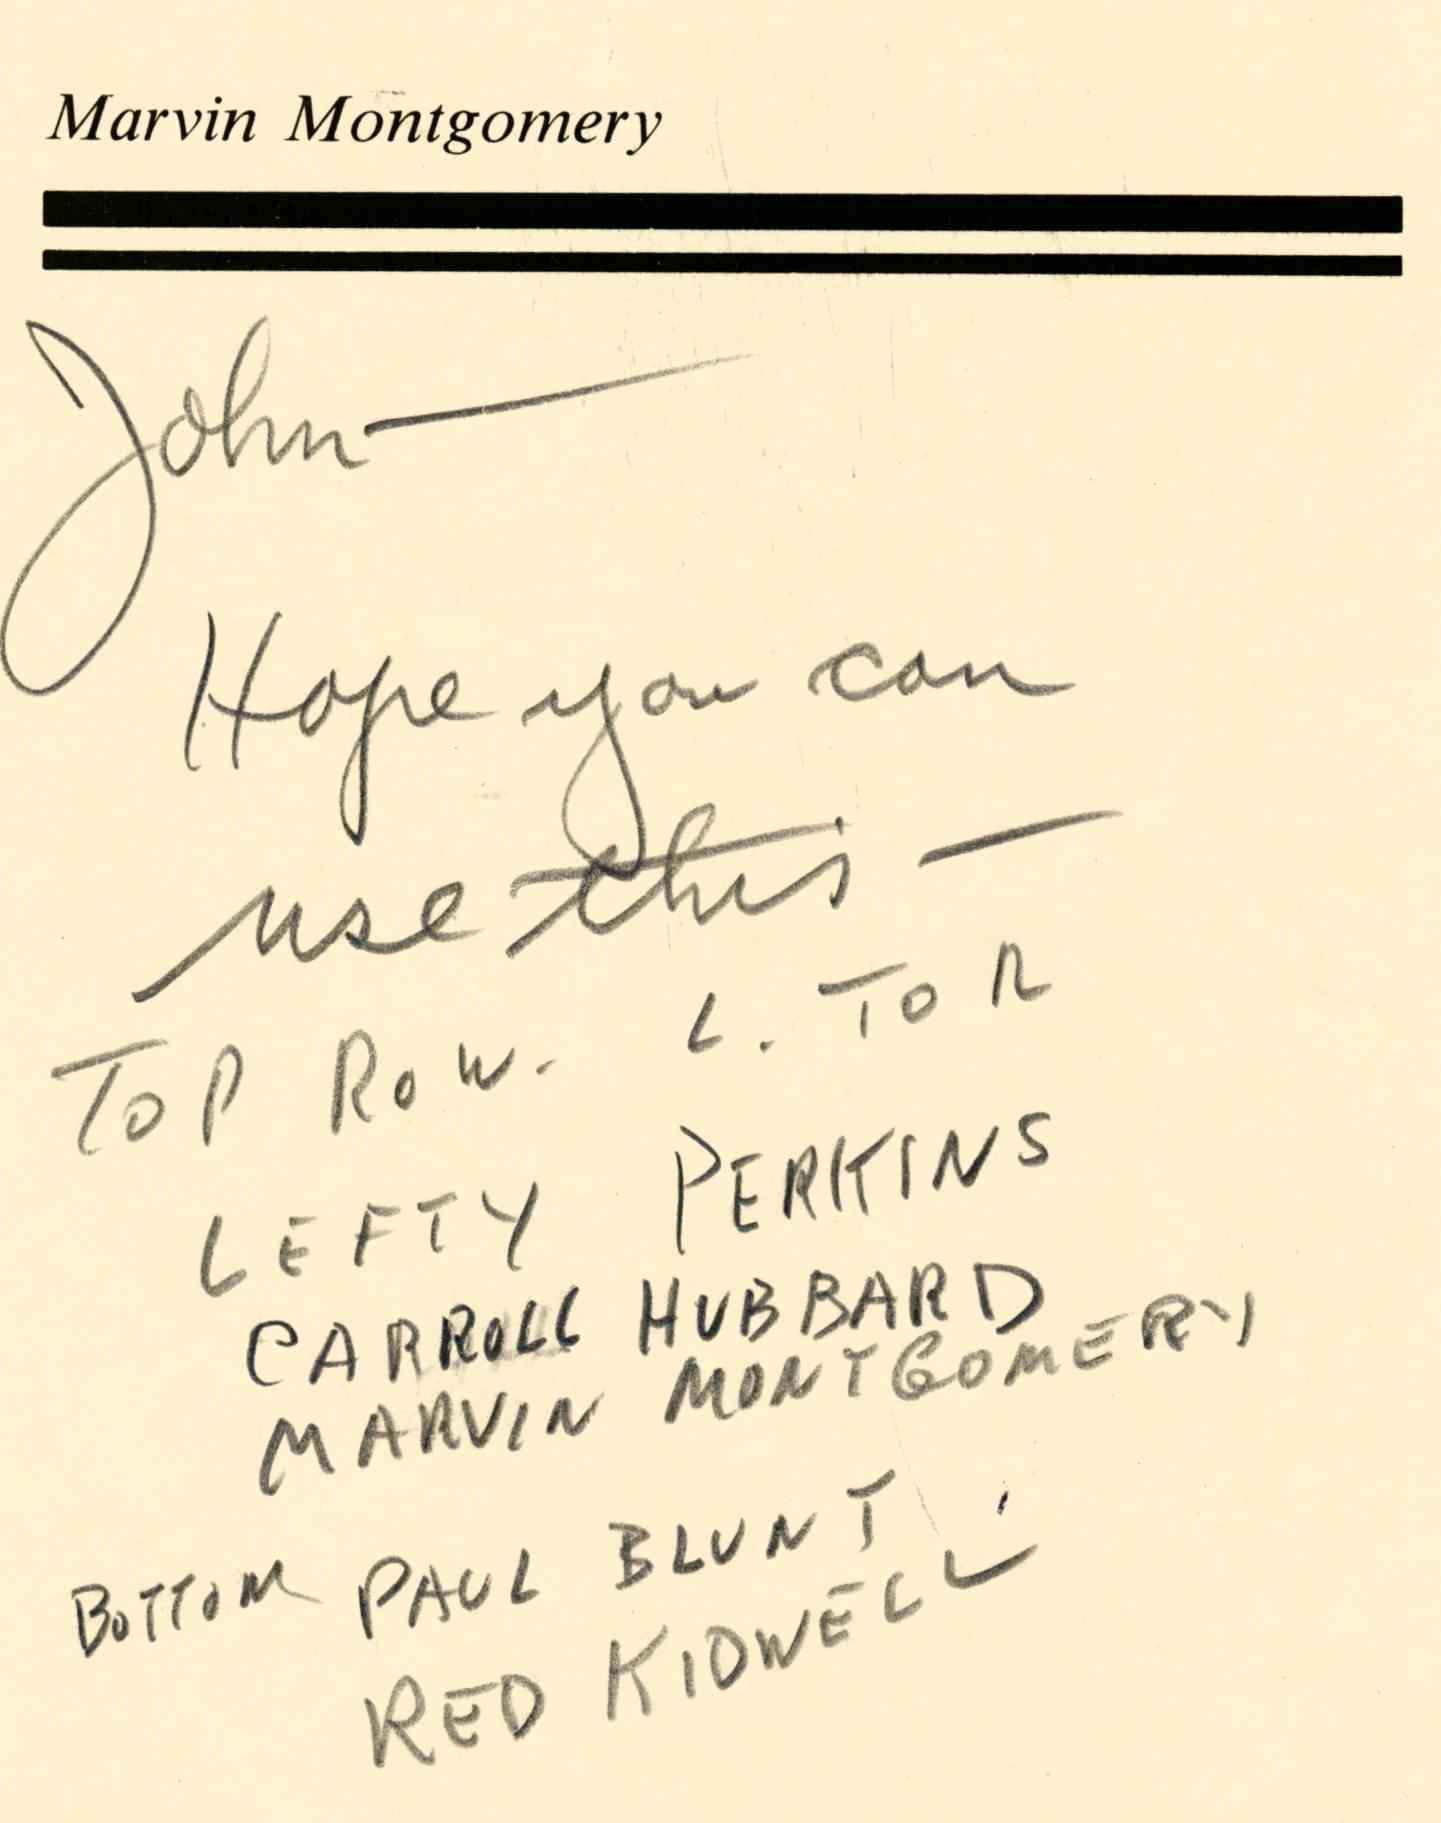 Marvin Montgomery
John—
Hope you can
use this—
TOP ROW. L. TO R
LEFTY PERKINS
CARROLL HUBBARD
MARVIN MONTGOMERY
BOTTOM PAUL BLUNT
RED KIDWELL